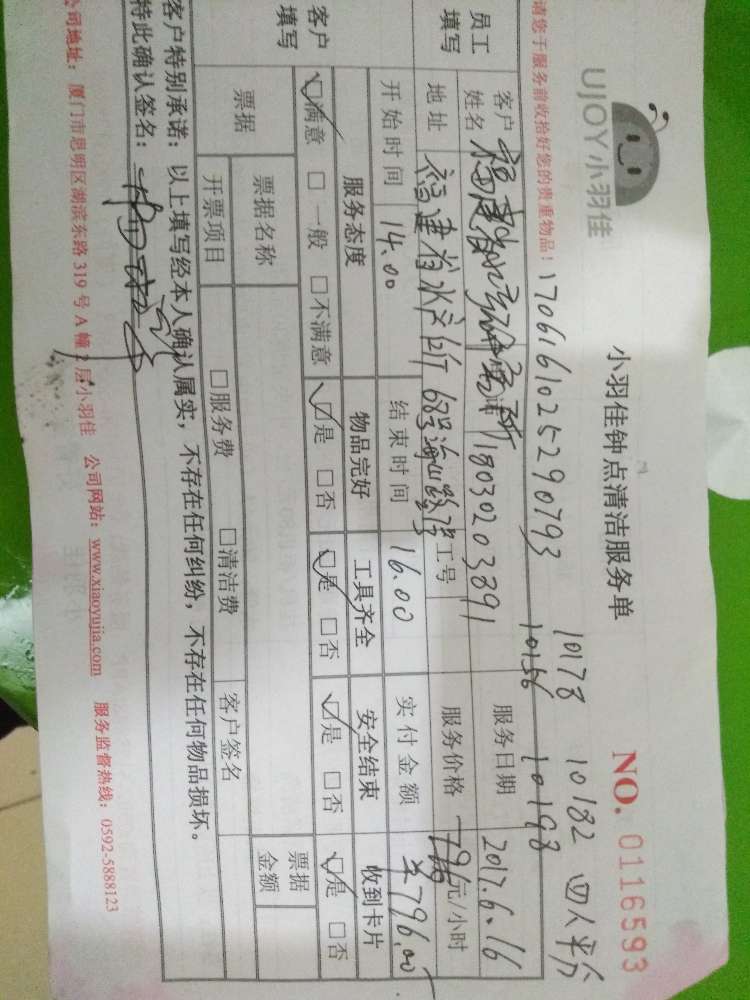 UJOY小羽佳
小羽佳钟点清洁服务单
NO. 0116593
10178 10182 四人平分
请您于服务前收拾好您的贵重物品!
1706161025290793
10156 10198
员工填写
客户姓名
18030203891
服务日期
2017.6.16
地址
福建省水产厅
工号
服务价格
元/小时
开始时间
14.00
结束时间
16.00
实付金额
¥796.00
客户填写
服务态度
物品完好
工具齐全
安全结束
收到卡片
☑满意 □一般 □不满意
☑是 □否
☑是 □否
☑是 □否
☑是 □否
票据
票据名称
票据金额
开票项目
□服务费 □清洁费
客户签名
客户特别承诺:以上填写经本人确认属实,不存在任何纠纷,不存在任何物品损坏。
特此确认签名:
公司地址:厦门市思明区湖滨东路 319 号 A 幢 2 层小羽佳 公司网站:www.xiaoyujia.com 服务监督热线:0592-5888123